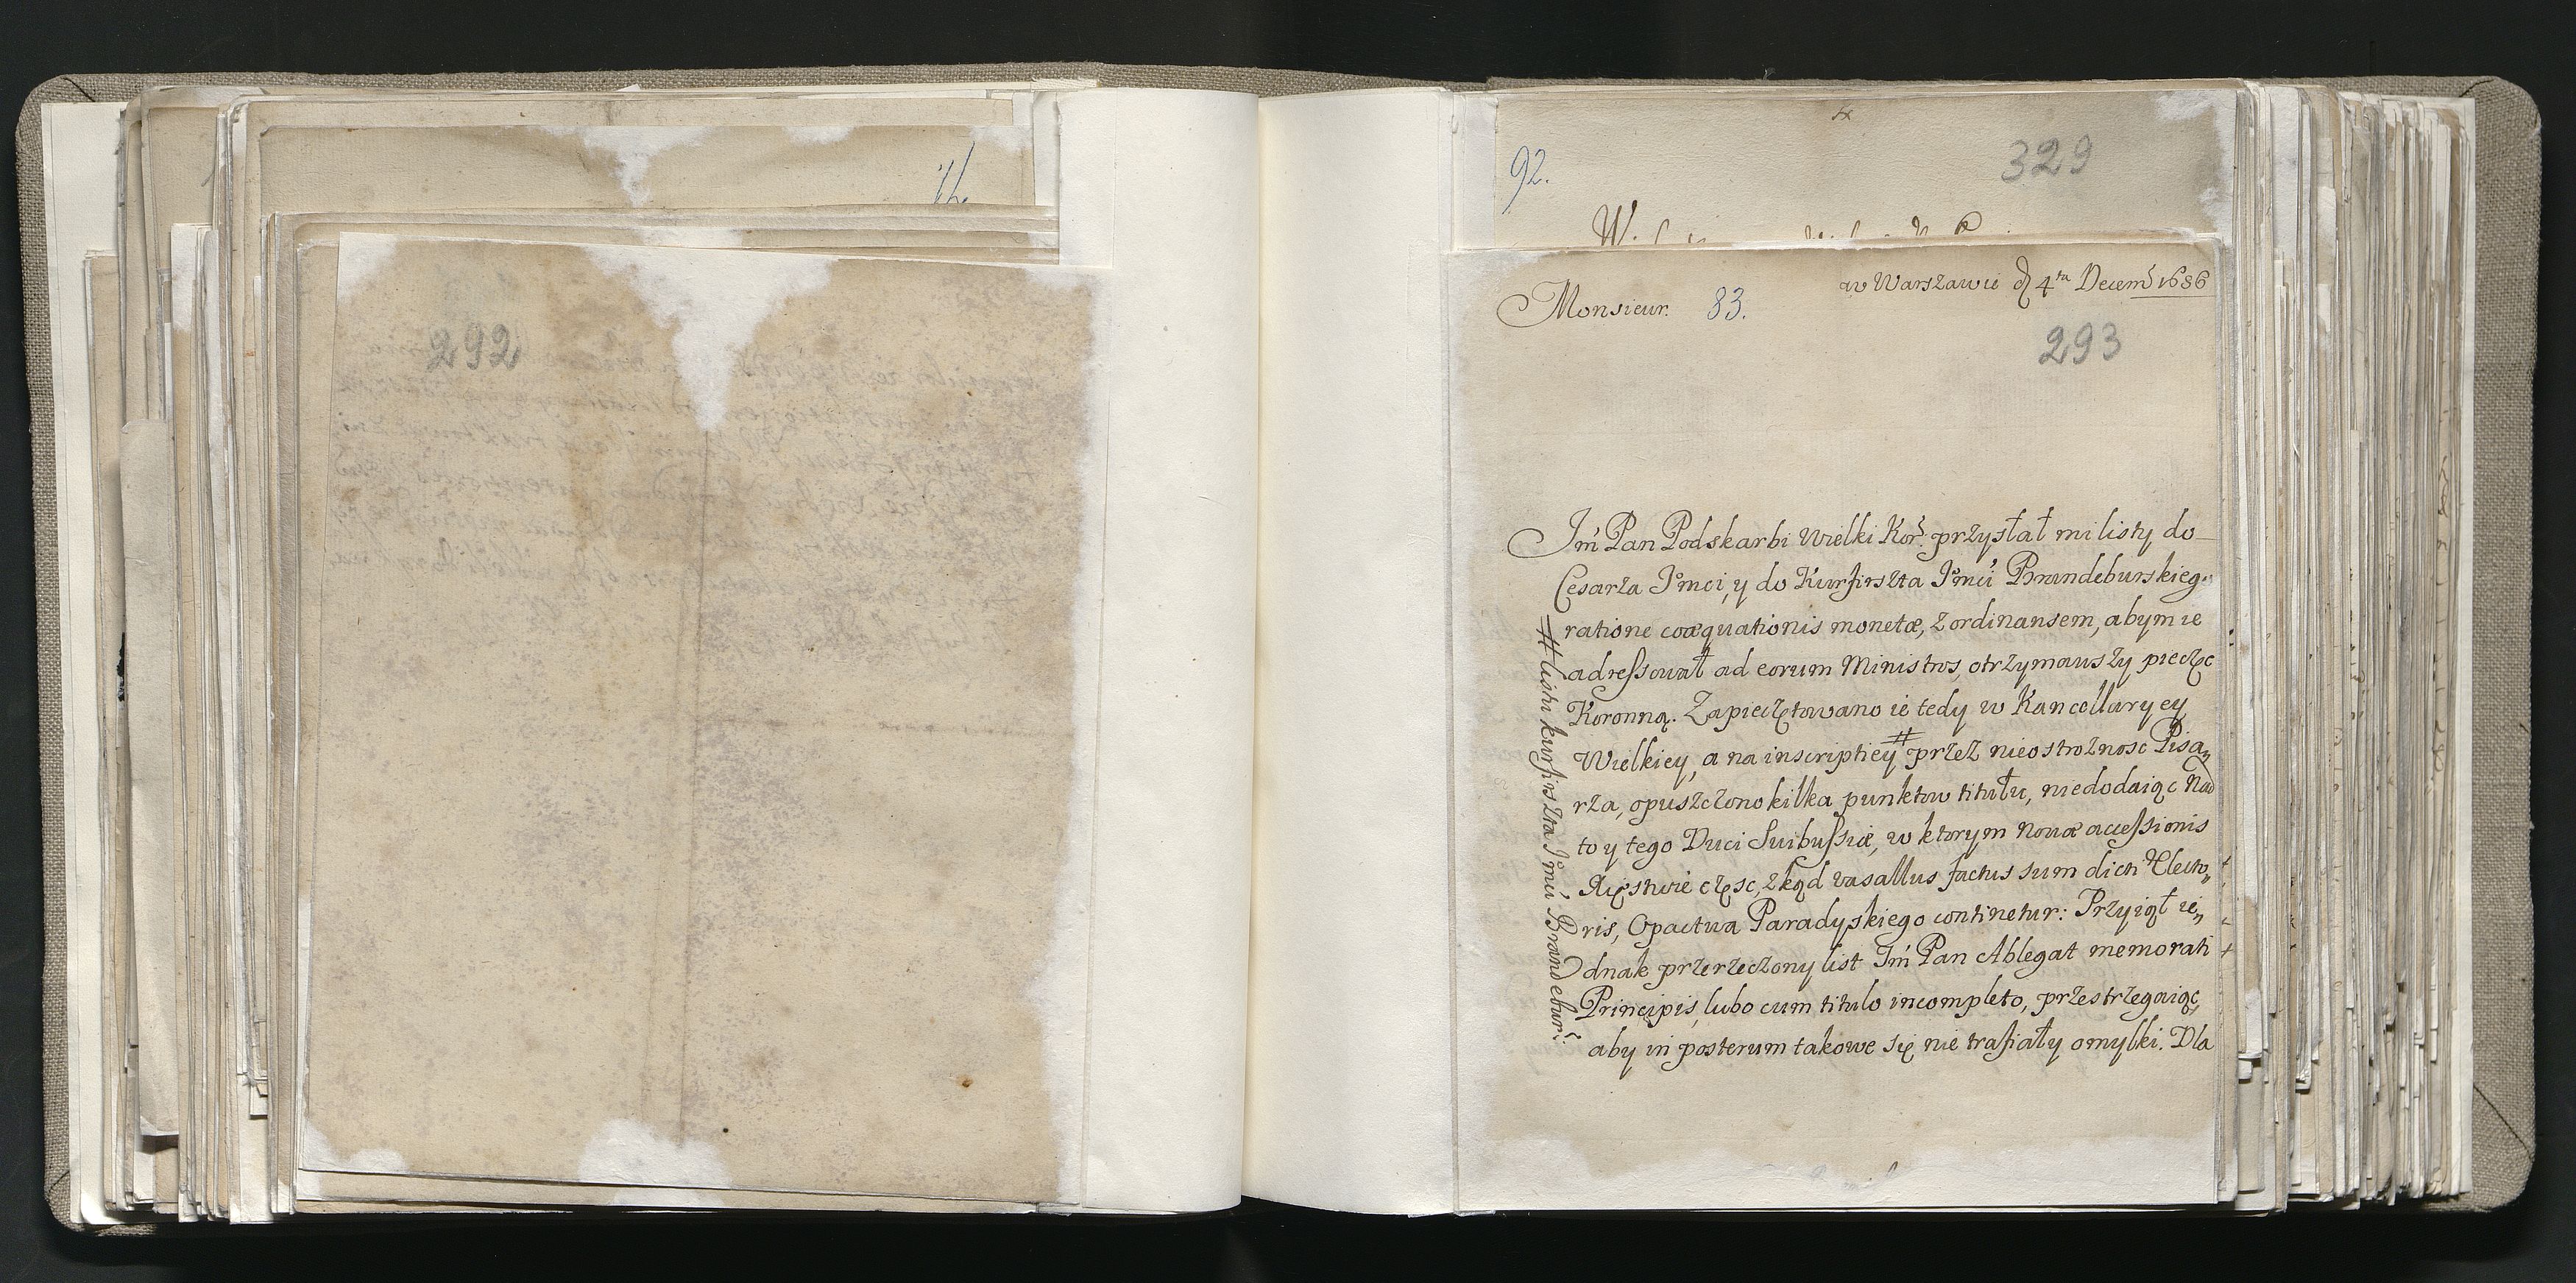 292
92.
329
w Warszawie d 4ta Decem 1686
Monsieur.
83.
293
Jm Pan Podskarbi Wielki Kor. przysłał mi listy do
Cesarza Jmci, y do Kurfirszta Jmci Brandeburskieg.
ratione coæquationis monetæ, z ordinansem, abym ie
adressował ad eorum Ministros, otrzymawszy pieczęc
Koronną. Zapieczętowano ie tedy w Kancellaryey
Wielkiey, a na inscriptiey # przez nieostroznosc Pisa„
rza, opuszczono kilka punktow titułu, niedodaiąc nad
to y tego Duci Suibussiæ, w ktorym nouæ accessionis
Xięstwie częsc, zkąd vasallus factus sum dicti Electo„
ris, Opactwa Paradyskiego continetur: Przyiął ie„
dnak przerzeczony list Jm Pan Ablegat memorati
Principis, lubo cum titulo incompleto, przestrzegaiąc,
aby in posterum takowe się nie trafiały omylki. Dla
# listu kurfirszta Jmci Brandebur.